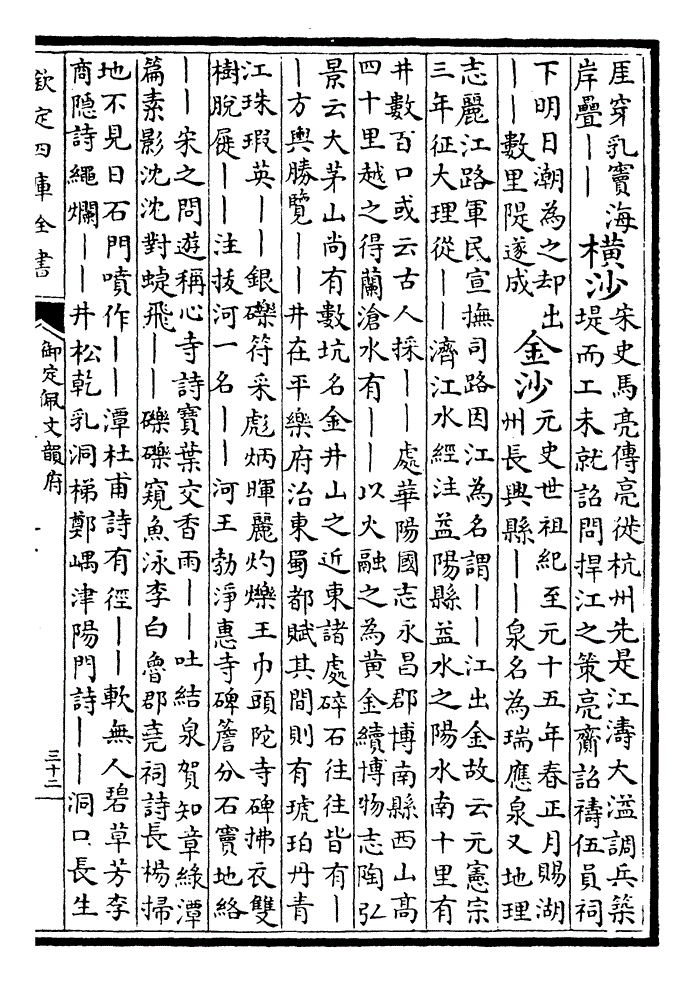 厓穿乳竇海
岸疊｜｜
橫沙
宋史馬亮傳亮徙杭州先是江濤大溢調兵築
堤而工未就詔問捍江之策亮齎詔禱伍員祠
下明日潮為之却出
｜｜數里隄遂成
金沙
元史世祖紀至元十五年春正月賜湖
州長興縣｜｜泉名為瑞應泉又地理
志麗江路軍民宣撫司路因江為名謂｜｜江出金故云元憲宗
三年征大理從｜｜濟江水經注益陽縣益水之陽水南十里有
井數百口或云古人採｜｜處華陽國志永昌郡博南縣西山高
四十里越之得蘭滄水有｜｜以火融之為黃金續博物志陶弘
景云大茅山尚有數坑名金井山之近東諸處碎石往往皆有｜
｜方輿勝覽｜｜井在平樂府治東蜀都賦其間則有琥珀丹青
江珠瑕英｜｜銀礫符采彪炳暉麗灼爍王巾頭陀寺碑拂衣雙
樹脫屣｜｜注拔河一名｜｜河王勃淨惠寺碑簷分石竇地絡
｜｜宋之問遊稱心寺詩寶葉交香雨｜｜吐結泉賀知章綠潭
篇素影沈沈對蜨飛｜｜礫礫窺魚泳李白魯郡堯祠詩長楊掃
地不見日石門噴作｜｜潭杜甫詩有徑｜｜軟無人碧草芳李
商隐詩繩爛｜｜井松乾乳洞梯鄭嵎津陽門詩｜｜洞口長生
欽定四庫全書
御定佩文韻府
三十二